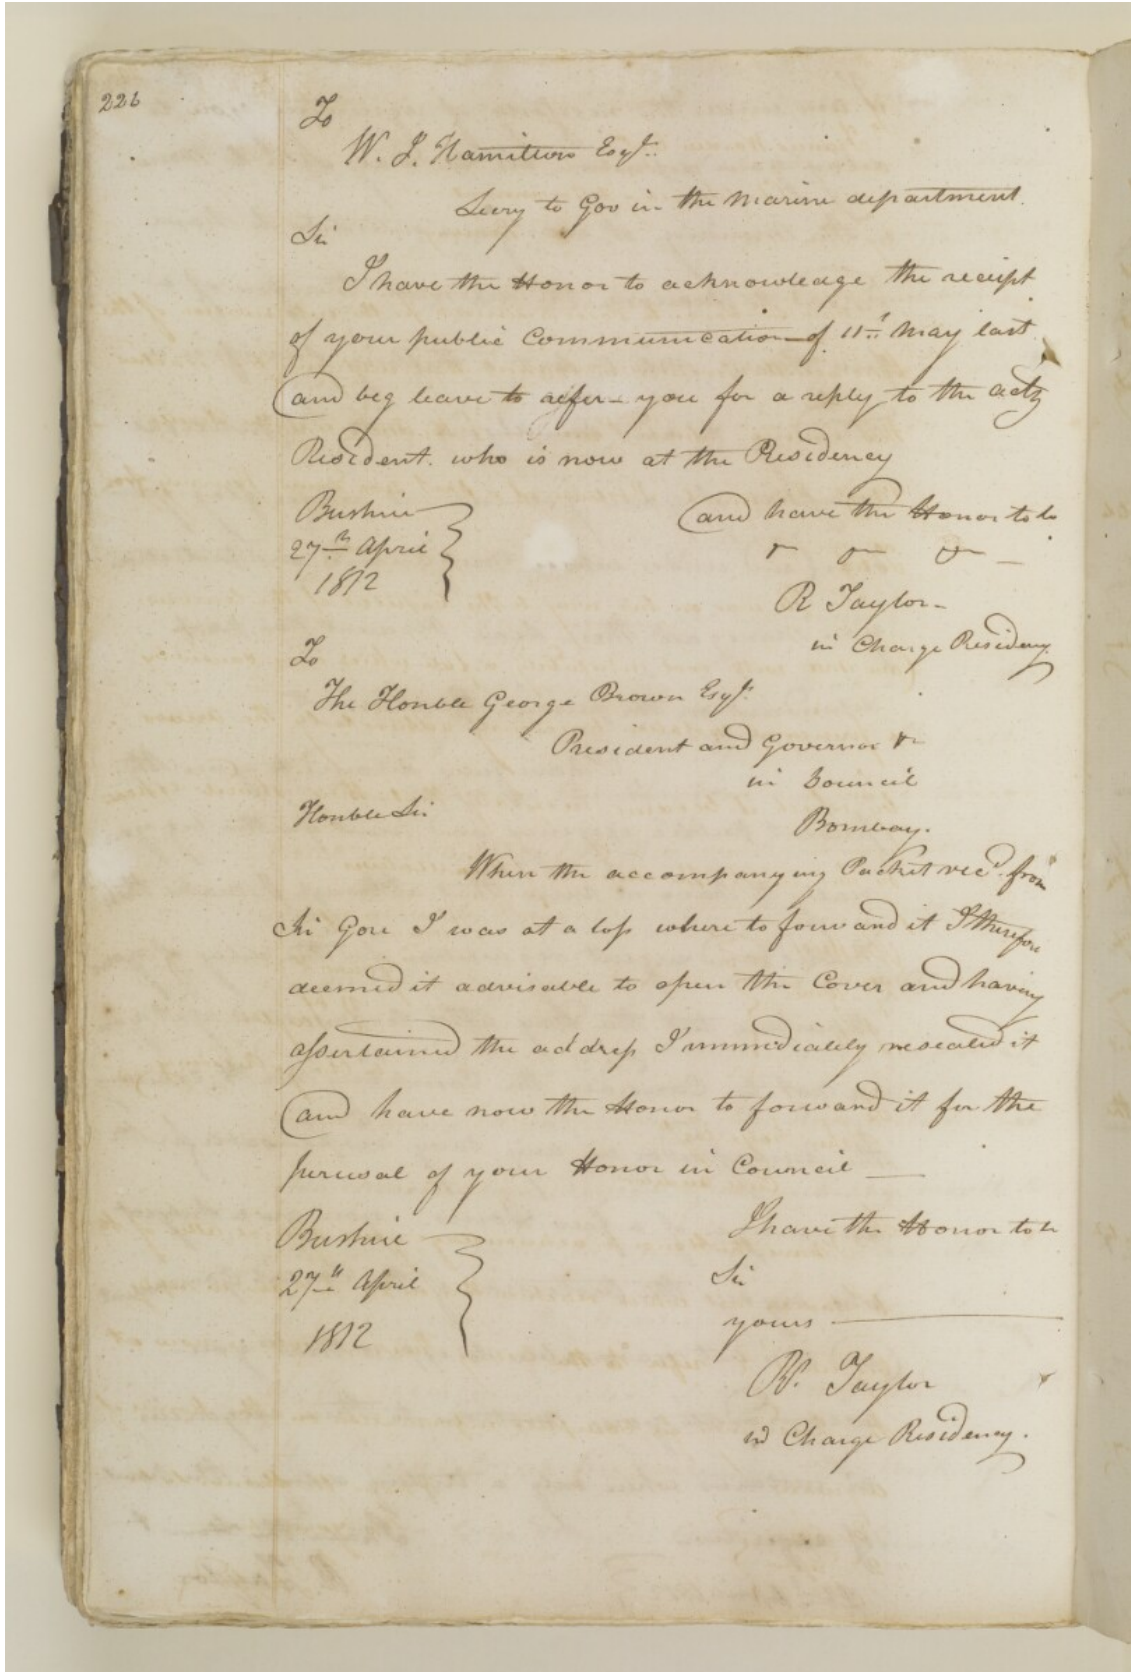 226
To
W. J. Hamilton Esqr.
Secry to Gov in the Marine department.
Sir
I have the Honor to acknowledge the receipt
of your public Communication of 11th May last
and beg leave to refer you for a reply to the actg
Resident. who is now at the Residency
and have the Honor to be
Bushire
27th April
1812
R Taylor
in Charge Residency.
To
The Honble George Brown Esqr.
President and Governor &c
in Council
Bombay.
Honble Sir
When the accompanying Packet recd. from
Sir Gore I was at a loss where to forward it I therefore
deemed it advisable to open the Cover and having
assertained the address I immediately resealed it
and have now the Honor to forward it for the
perusal of your Honor in Council
I have the Honor to be
Sir
yours
Bushire
27th April
1812
R. Taylor
in Charge Residency.